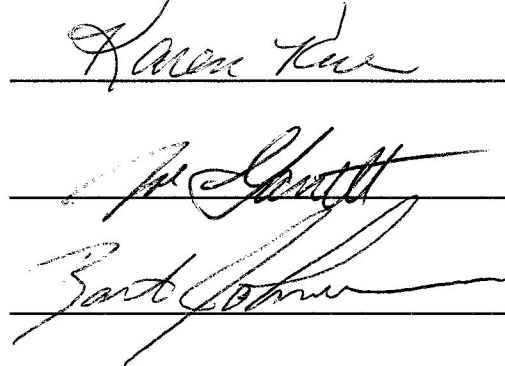 Karen
Joe Garrett
Bart Johnson